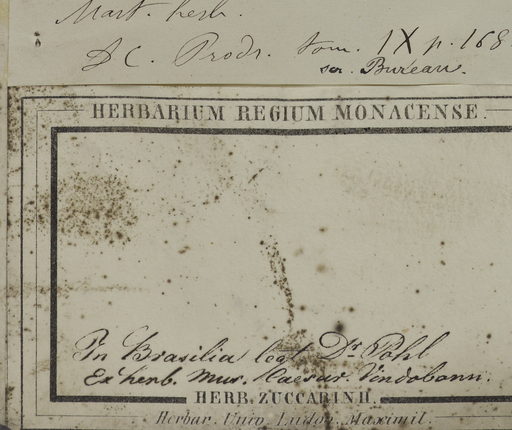 Mart. herb.
DC. Prodr. tom. IX p. 168
scr. Bureau.
HERBARIUM REGIUM MONACENSE.
In Brasilia legt Dr Pohl
Ex herb. Mus. Caesar. Vindobonn.
HERB. ZUCCARINII.
Herbar. Univ. Ludov. Maximil.